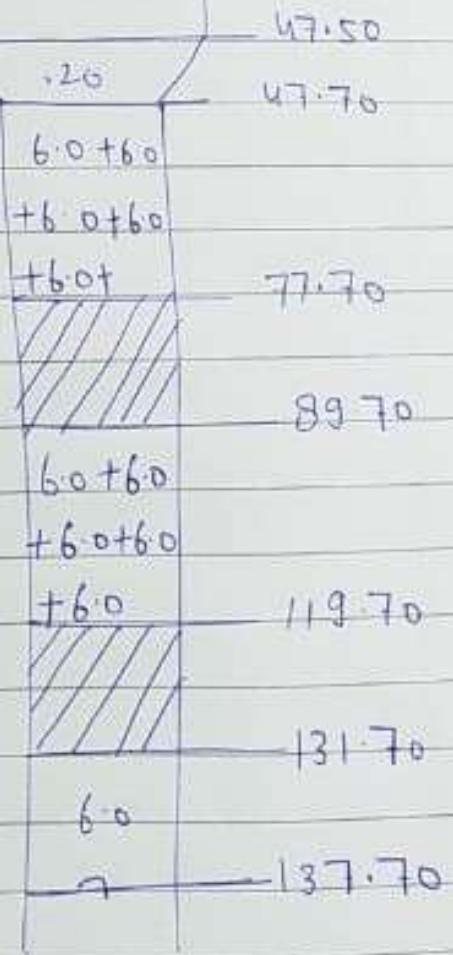 47.50
.20
47.70
6.0 + 6.0
+ 6.0 + 6.0
+ 6.0 +
77.70
89.70
6.0 + 6.0
+ 6.0 + 6.0
+ 6.0
119.70
131.70
6.0
137.70